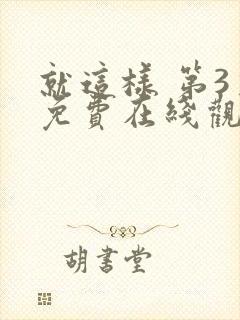 就這樣 第3
免費在綫觀
胡書堂